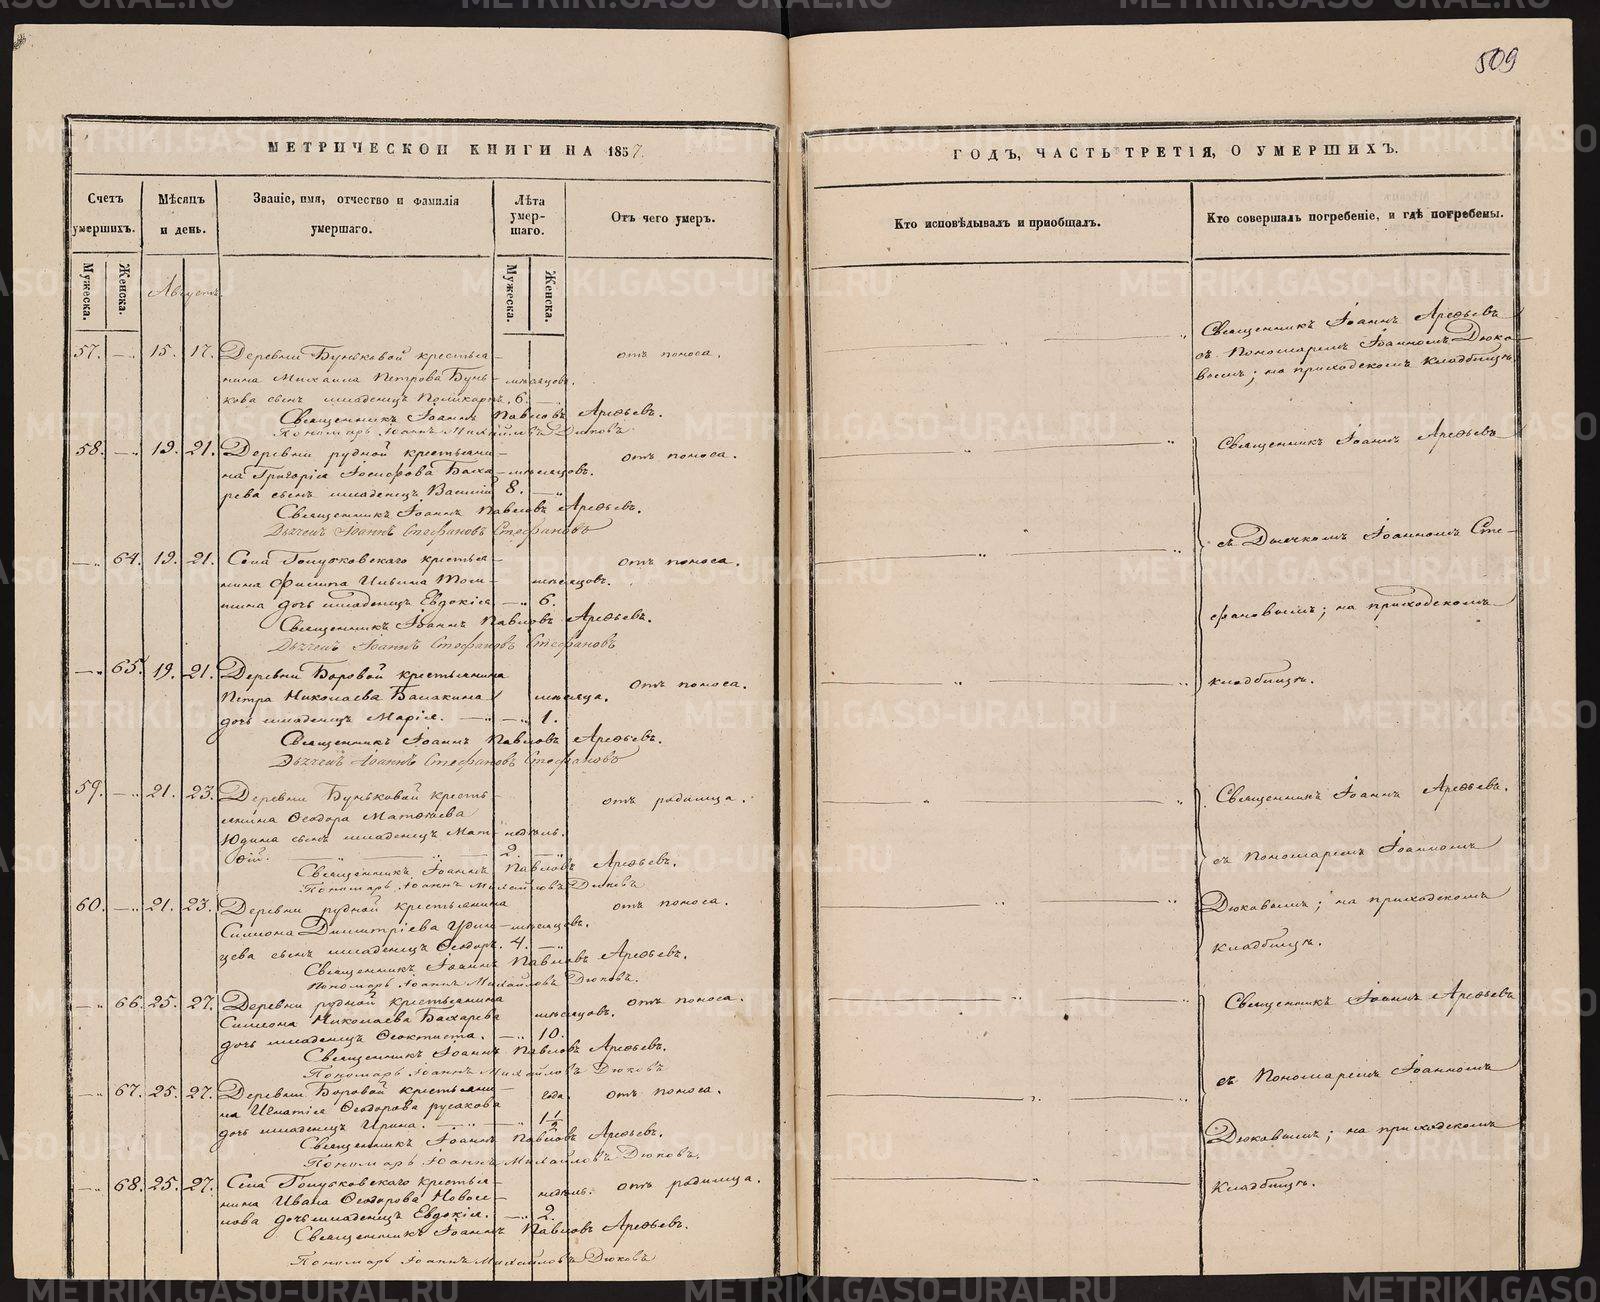 509
МЕТРИЧЕСКОЙ КНИГИ НА 1857.
ГОДЪ, ЧАСТЬ ТРЕТІЯ, О УМЕРШИХЪ.
Счетъ умершихъ.
Мужеска.
Женска.
Мѣсяцъ и день.
Званіе, имя, отчество и фамилія умершаго.
Лѣта умершаго.
Мужеска.
Женска.
Отъ чего умеръ.
Кто исповѣдывалъ и пріобщалъ.
Кто совершалъ погребеніе, и гдѣ погребены.
Августъ
57. 15. 17. Деревни Буньковой крестья- отъ поноса.
нина Михаила Петрова Бунь- мѣсяцовъ.
кова сынъ младенецъ Поликарпъ. 6.
Священникъ Іоаннъ Павловъ Арефьевъ.
Пономарь Іоаннъ Михайловъ Дюковъ
Священникъ Іоаннъ Арефьевъ
съ Пономаремъ Іоанномъ Дюко-
вымъ; на приходскомъ кладбищѣ.
58. 19. 21. Деревни рудной крестьяни- отъ поноса.
на Григорія Іосифова Баха- мѣсяцовъ.
рева сынъ младенецъ Василій 8.
Священникъ Іоаннъ Павловъ Арефьевъ.
Дьячекъ Іоаннъ Стефановъ Стефановъ
Священникъ Іоаннъ Арефьевъ
64. 19. 21. Села крестья- отъ поноса.
нина Филипа Ильина мѣсяцовъ.
дочь младенецъ Евдокія 6.
Священникъ Іоаннъ Павловъ Арефьевъ.
Дьячекъ Іоаннъ Стефановъ Стефановъ
съ Дьячкомъ Іоанномъ Сте-
фановымъ; на приходскомъ
65. 19. 21. Деревни Боровой крестьянина отъ поноса.
Петра Николаева Балакина мѣсяца.
дочь младенецъ Марія. 1.
Священникъ Іоаннъ Павловъ Арефьевъ.
Дьячекъ Іоаннъ Стефановъ Стефановъ
кладбищѣ.
59. 21. 23. Деревни Буньковой кресть- отъ родимца.
янина Ѳеодора Матѳіева
Юдина сынъ младенецъ Мат- недѣль.
ѳій. 2.
Священникъ Іоаннъ Павловъ Арефьевъ.
Пономарь Іоаннъ Михайловъ Дюковъ
Священникъ Іоаннъ Арефьевъ.
съ Пономаремъ Іоанномъ
60. 21. 23. Деревни рудной крестьянина отъ поноса.
Симиона Димитріева мѣсяцовъ.
цева сынъ младенецъ Ѳеодоръ. 4.
Священникъ Іоаннъ Павловъ Арефьевъ.
Пономарь Іоаннъ Михайловъ Дюковъ.
Дюковымъ; на приходскомъ
кладбищѣ.
66. 25. 27. Деревни рудной крестьянина отъ поноса.
Симеона Николаева Бахарева мѣсяцовъ.
дочь младенецъ Ѳеоктиста. 10.
Священникъ Іоаннъ Павловъ Арефьевъ.
Пономарь Іоаннъ Михайловъ Дюковъ
Священникъ Іоаннъ Арефьевъ
съ Пономаремъ Іоанномъ
67. 25. 27. Деревни Боровой крестьяни- отъ поноса.
на Игнатія Ѳеодорова русакова года.
дочь младенецъ Ирина. 1½
Священникъ Іоаннъ Павловъ Арефьевъ.
Пономарь Іоаннъ Михайловъ Дюковъ.
Дюковымъ; на приходскомъ
68. 25. 27. Села крестья- отъ родимца.
нина Ивана Ѳеодорова Новосе- недѣль.
лова дочь младенецъ Евдокія. 2.
Священникъ Іоаннъ Павловъ Арефьевъ.
Пономарь Іоаннъ Михайловъ Дюковъ
кладбищѣ.
METRIKI.GASO-URAL.RU